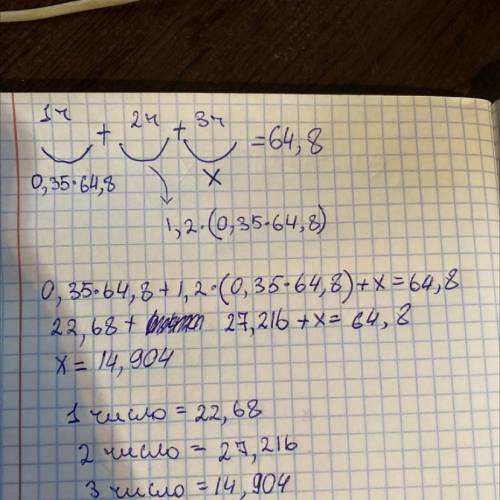 1ч + 2ч + 3ч = 64,8
0,35·64,8 x
1,2·(0,35·64,8)
0,35·64,8 + 1,2·(0,35·64,8) + x = 64,8
22,68 + 27,216 + x = 64,8
x = 14,904
1 число = 22,68
2 число = 27,216
3 число = 14,904